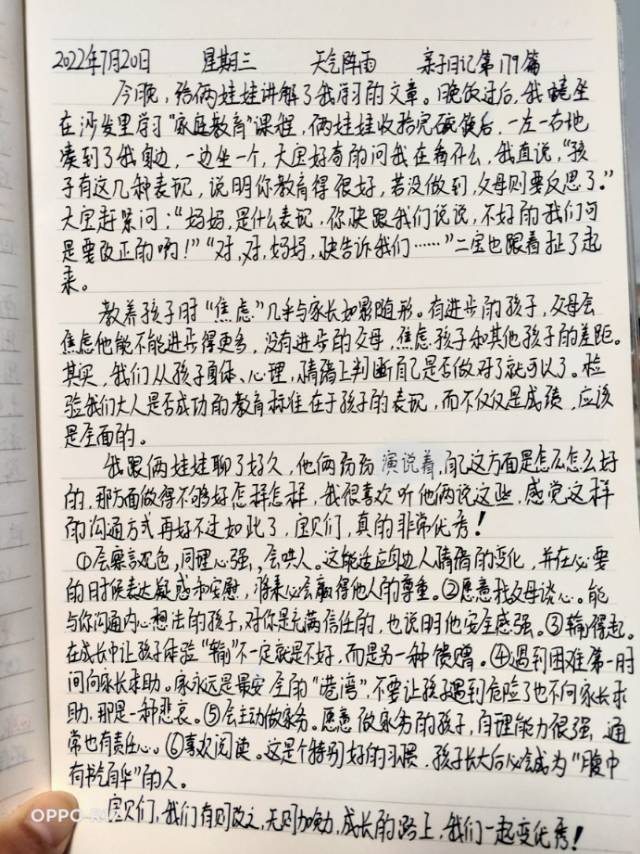 2022年7月20日 星期三 天气阵雨 亲子日记第179篇
今晚，给俩娃娃讲解了我学习的文章。晚饭过后，我坐
在沙发里学习"家庭教育"课程，俩娃娃收拾完碗筷后，一左一右地
凑到了我身边，一边坐一个，大宝好奇的问我在看什么，我直说，"孩
子有这几种表现，说明你教育得很好，若没做到，父母则要反思了。"
大宝赶紧问："妈妈，是什么表现，你快跟我们说说，不好的我们可
是要改正的哟！""对，对，妈妈，快告诉我们……"二宝也跟着扯了起
来。
教养孩子时"焦虑"几乎与家长如影随形。有进步的孩子，父母会
焦虑他能不能进步得更多，没有进步的父母，焦虑孩子和其他孩子的差距。
其实，我们从孩子身体、心理，情绪上判断自己是否做对了就可以了。检
验我们大人是否成功的教育标准在于孩子的表现，而不仅仅是成绩，应该
是全面的。
我跟俩娃娃聊了好久，他俩纷纷演说着，自己这方面是怎么怎么好
的，那方面做得不够好怎样怎样，我很喜欢听他俩说这些，感觉这样
的沟通方式再好不过如此了，宝贝们，真的非常优秀！
①会察言观色，同理心强，会哄人。这能适应身边人情绪的变化，并在必要
的时候表达疑惑和安慰，将来必会赢得他人的尊重。②愿意找父母谈心。能
与你沟通内心想法的孩子，对你是充满信任的，也说明他安全感强。③输得起。
在成长中让孩子体验"输"不一定就是不好，而是另一种馈赠。④遇到困难第一时
间向家长求助。家永远是最安全的"港湾"，不要让孩子遇到危险了也不向家长求
助，那是一种悲哀。⑤会主动做家务。愿意做家务的孩子，自理能力很强，通
常也有责任心。⑥喜欢阅读。这是个特别好的习惯，孩子长大后必会成为"腹中
有书气自华"的人。
宝贝们，我们有则改之，无则加勉，成长的路上，我们一起变优秀！
OPPO